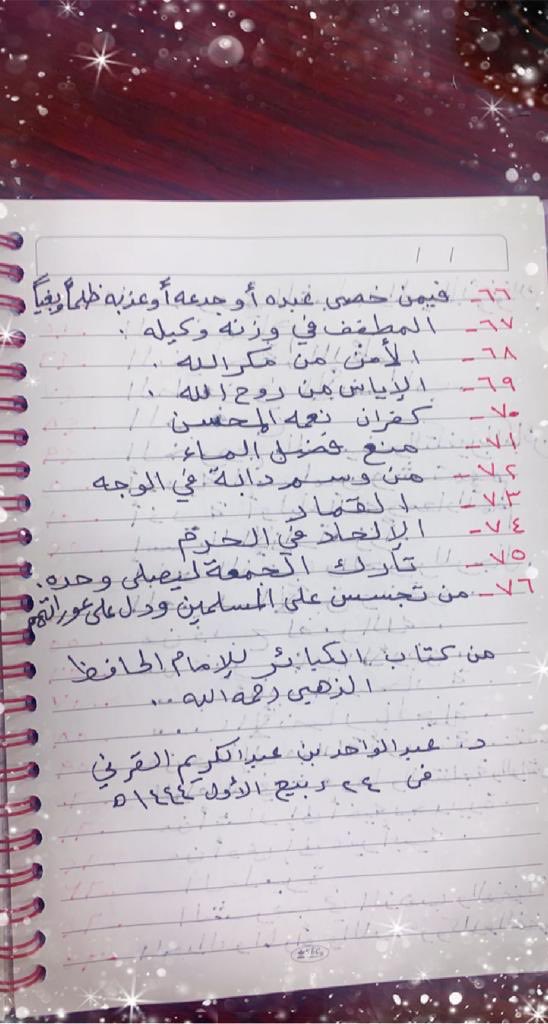 ٦٦- فيمن خصى عبده أو جدعه أو عذبه ظلماً وبغياً
٦٧- المطفف في وزنه وكيله .
٦٨- الأمن من مكر الله .
٦٩- الإياس من روح الله .
٧٠- كفران نعمة المحسن
٧١- منع فضل الماء
٧٢- من وسم دابة في الوجه
٧٣- القمار
٧٤- الإلحاد في الحرم
٧٥- تارك الجمعة ليصلي وحده .
٧٦- من تجسس على المسلمين ودل على عوراتهم
من كتاب الكبائر للإمام الحافظ
الذهبي رحمه الله ..
د. عبدالواحد بن عبدالكريم القرني
في ٢٤ ربيع الأول ١٤٤٤ه